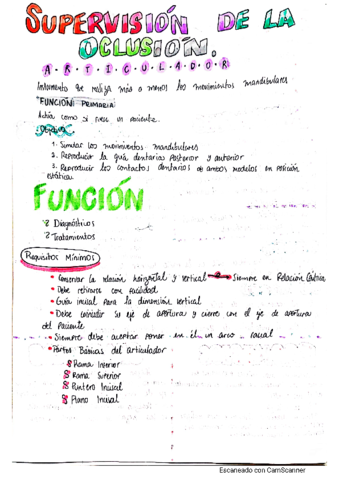 SUPERVISIÓN DE LA
OCLUSIÓN.
A·R·T·I·C·U·L·A·D·O·R
Instrumento que realiza más o menos los movimientos mandibulares
*FUNCION PRIMARIA:
Actúa como si fuese un paciente.
Objetivo
1. Simular los movimientos mandibulares
2. Reproducir la guía dentarias Posterior y anterior
3. Reproducir los contactos dentarios de ambos modelos en posición
estática.
FUNCIÓN
Diagnósticos
Tratamientos
Requisitos Mínimos
• Conservar la relación horizontal y vertical Siempre en Relación Céntrica
• Debe retirarse con facilidad
• Guía incisal para la dimensión vertical
• Debe coincidir su eje de apertura y cierre con el eje de apertura
del Paciente
• Siempre debe aceptar poner en él un arco facial
• Partes Básicas del articulador
Rama Inferior
Rama Superior
Puntero Incisal
Plano Incisal
Escaneado con CamScanner